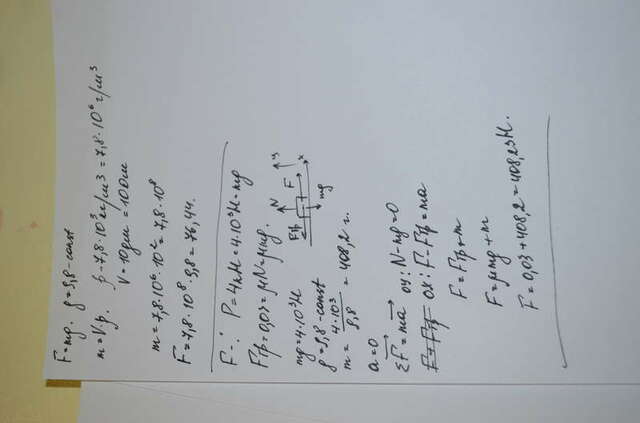 F=mg. g=9,8-const
m=V·ρ. ρ=7,8·10³кг/м³=7,8·10⁶г/м³
V=10дм=100см
m=7,8·10⁶·10²=7,8·10⁸
F=7,8·10⁸·9,8=76,44.
F-? P=4кН=4·10³Н=mg
Fтр=0,03=μN=μmg.
mg=4·10³Н
g=9,8-const
m=4·10³/9,8=408,2 г.
Fтр N F y x mg
a=0
ΣF=ma oy: N-mg=0
F=Fтр ox: F-Fтр=ma
F=Fтр+m
F=μmg+m
F=0,03+408,2=408,23Н.